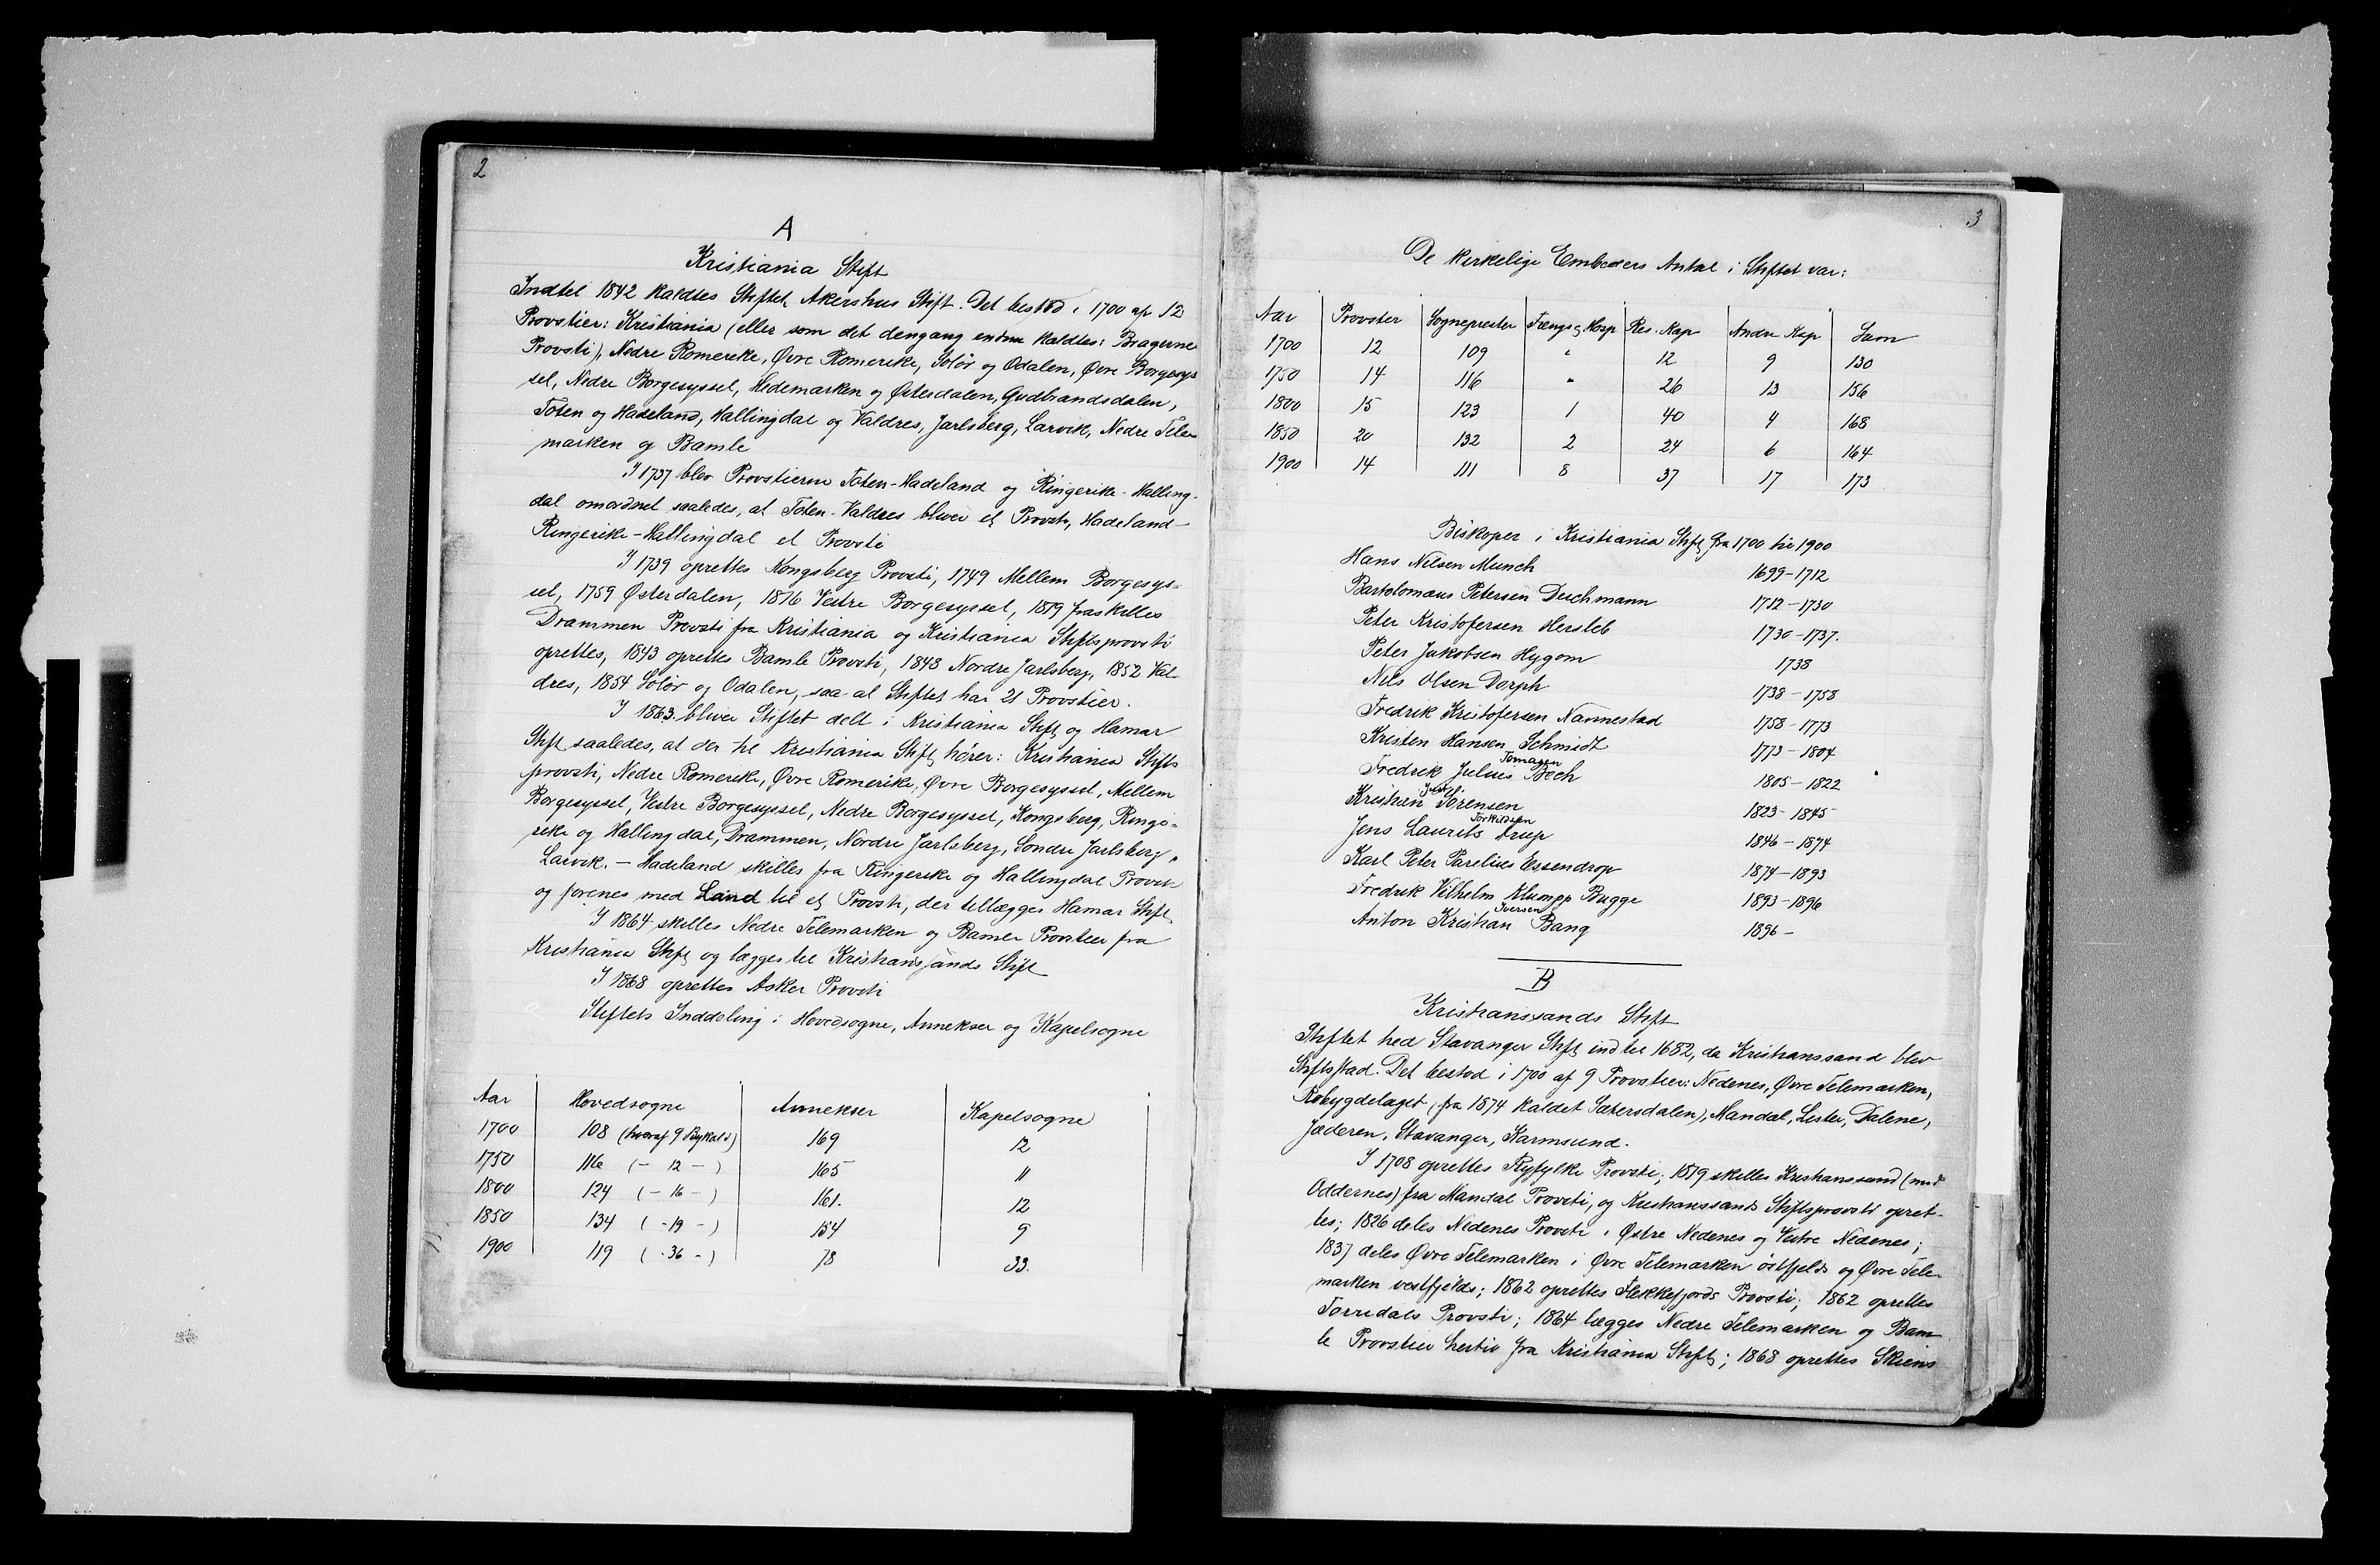 2
A
Kristiania Stift
Indtil 1842 kaldtes Stiftet Akershus Stift. Det bestod i 1700 af 12
Provstier: Kristiania (eller som det dengang endnu kaldtes: Bragerne
Provsti), Nedre Romerike, Øvre Romerike, Solør og Odalen, Øvre Borgesys
sel, Nedre Borgesyssel, Hedemarken og Østerdalen, Gudbrandsdalen,
Toten og Hadeland, Hallingdal og Valdres, Jarlsberg, Larvik, Nedre Tele-
marken og Bamle
I 1737 blev Provstierne Toten-Hadeland og Ringerike-Halling-
dal omordnet saaledes, at Toten-Valdres bliver et Provsti, Hadeland-
Ringerike-Hallingdal et Provsti
I 1739 oprettes Kongsberg Provsti, 1749 Mellem Borgesys-
sel, 1759 Østerdalen, 1816 Vestre Borgesyssel, 1819 fraskilles
Drammen Provsti fra Kristiania og Kristiania Stiftsprovsti
oprettes, 1843 oprettes Bamle Provsti, 1848 Nordre Jarlsberg, 1852 Val-
dres, 1854 Solør og Odalen, saa at Stiftet har 21 Provstier.
I 1863 bliver Stiftet delt i Kristiania Stift og Hamar
Stift saaledes, at der til Kristiania Stift hører: Kristiania Stifts
provsti, Nedre Romerike, Øvre Romerike, Øvre Borgesyssel, Mellem
Borgesyssel, Vestre Borgesyssel, Nedre Borgesyssel, Kongsberg, Ringe-
rike og Hallingdal, Drammen, Nordre Jarlsberg, Søndre Jarlsberg,
Larvik. - Hadeland skilles fra Ringerike og Hallingdal Provsti
og forenes med Land til et Provsti, der tillægges Hamar Stift
I 1864 skilles Nedre Telemarken og Bamle Provstier fra
Kristiania Stift og lægges til Kristianssands Stift
I 1868 oprettes Asker Provsti
Stiftets Inddeling i Hovedsogne, Annekser og Kapelsogne
Aar Hovedsogne Annekser Kapelsogne
1700 108 (hvoraf 9 Bykald) 169 12
1750 116 (- 12 -) 165 11
1800 124 (- 16 -) 161. 12
1850 134 (- 19 -) 154 9
1900 119 (- 36 -) 78 33.
3
De kirkelige Embeders Antal i Stiftet var:
Aar Provster Sogneprester Fængs og Hosp Res. Kap Andre Kap Sum
1700 12 109 " 12 9 130
1750 14 116 " 26 13 156
1800 15 123 1 40 4 168
1850 20 132 2 24 6 164
1900 14 111 8 37 17 173
Biskoper i Kristiania Stift fra 1700 til 1900
Hans Nilsen Munch 1699-1712
Bartolomæus Petersen Deichmann 1712-1730
Peter Kristofersen Hersleb 1730-1737.
Peter Jakobsen Hygom 1738
Nils Olsen Dorph 1738-1758
Fredrik Kristofersen Nannestad 1758-1773
Kristen Hansen Schmidt 1773-1804
Fredrik Julius Tomasen Bech 1805-1822
Kristian Juel Sörensen 1823-1845
Jens Laurits Torkildsen Arup 1846-1874
Karl Peter Parelius Essendrop 1874-1893
Fredrik Vilhelm Klumpp Bugge 1893-1896
Anton Kristian Iversen Bang 1896-
B
Kristianssands Stift
Stiftet hed Stavanger Stift indtil 1682, da Kristianssand blev
Stiftsstad. Det bestod i 1700 af 9 Provstier: Nedenes, Øvre Telemarken,
Robygdelaget (fra 1874 kaldet Sætersdalen), Mandal, Lister, Dalene,
Jæderen, Stavanger, Karmsund.
I 1708 oprettes Ryfylke Provsti; 1819 skilles Kristianssand (med
Oddernes) fra Mandal Provsti, og Kristianssands Stiftsprovsti opret-
tes; 1826 deles Nedenes Provsti i Østre Nedenes og Vestre Nedenes;
1837 deles Øvre Telemarken i Øvre Telemarken östfjelds og Øvre Tele-
marken vestfjelds; 1862 oprettes Flekkefjords Provsti; 1862 oprettes
Torridals Provsti; 1864 lægges Nedre Telemarken og Bam
le Provstier hertil fra Kristiania Stift; 1868 oprettes Skiens